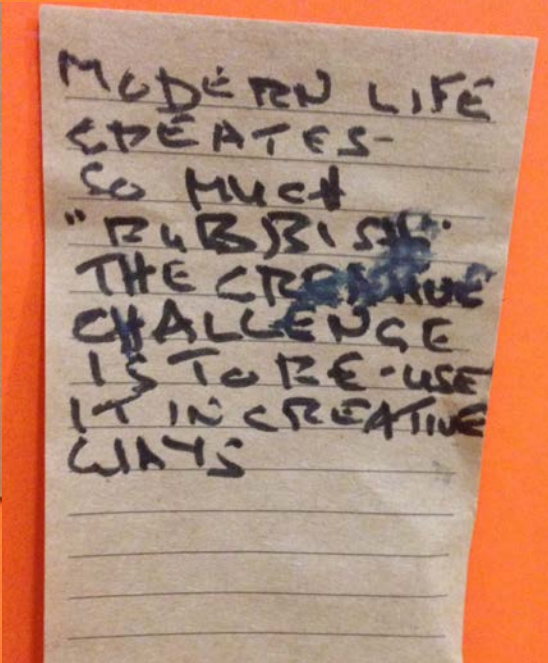 MODERN LIFE
CREATES-
SO MUCH
"RUBBISH"
THE CREATIVE
CHALLENGE
IS TO RE-USE
IT IN CREATIVE
WAYS